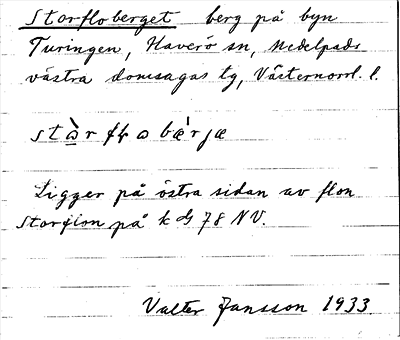 Storfloberget berg på byn
Turingen, Haverö sn, Medelpads
västra domsagas tg, Västernorrl. l.
stàr flo bæ̀rjæ
Ligger på östra sidan av flon
Storflon på k dg 78 NV.
Valter Jansson 1933.